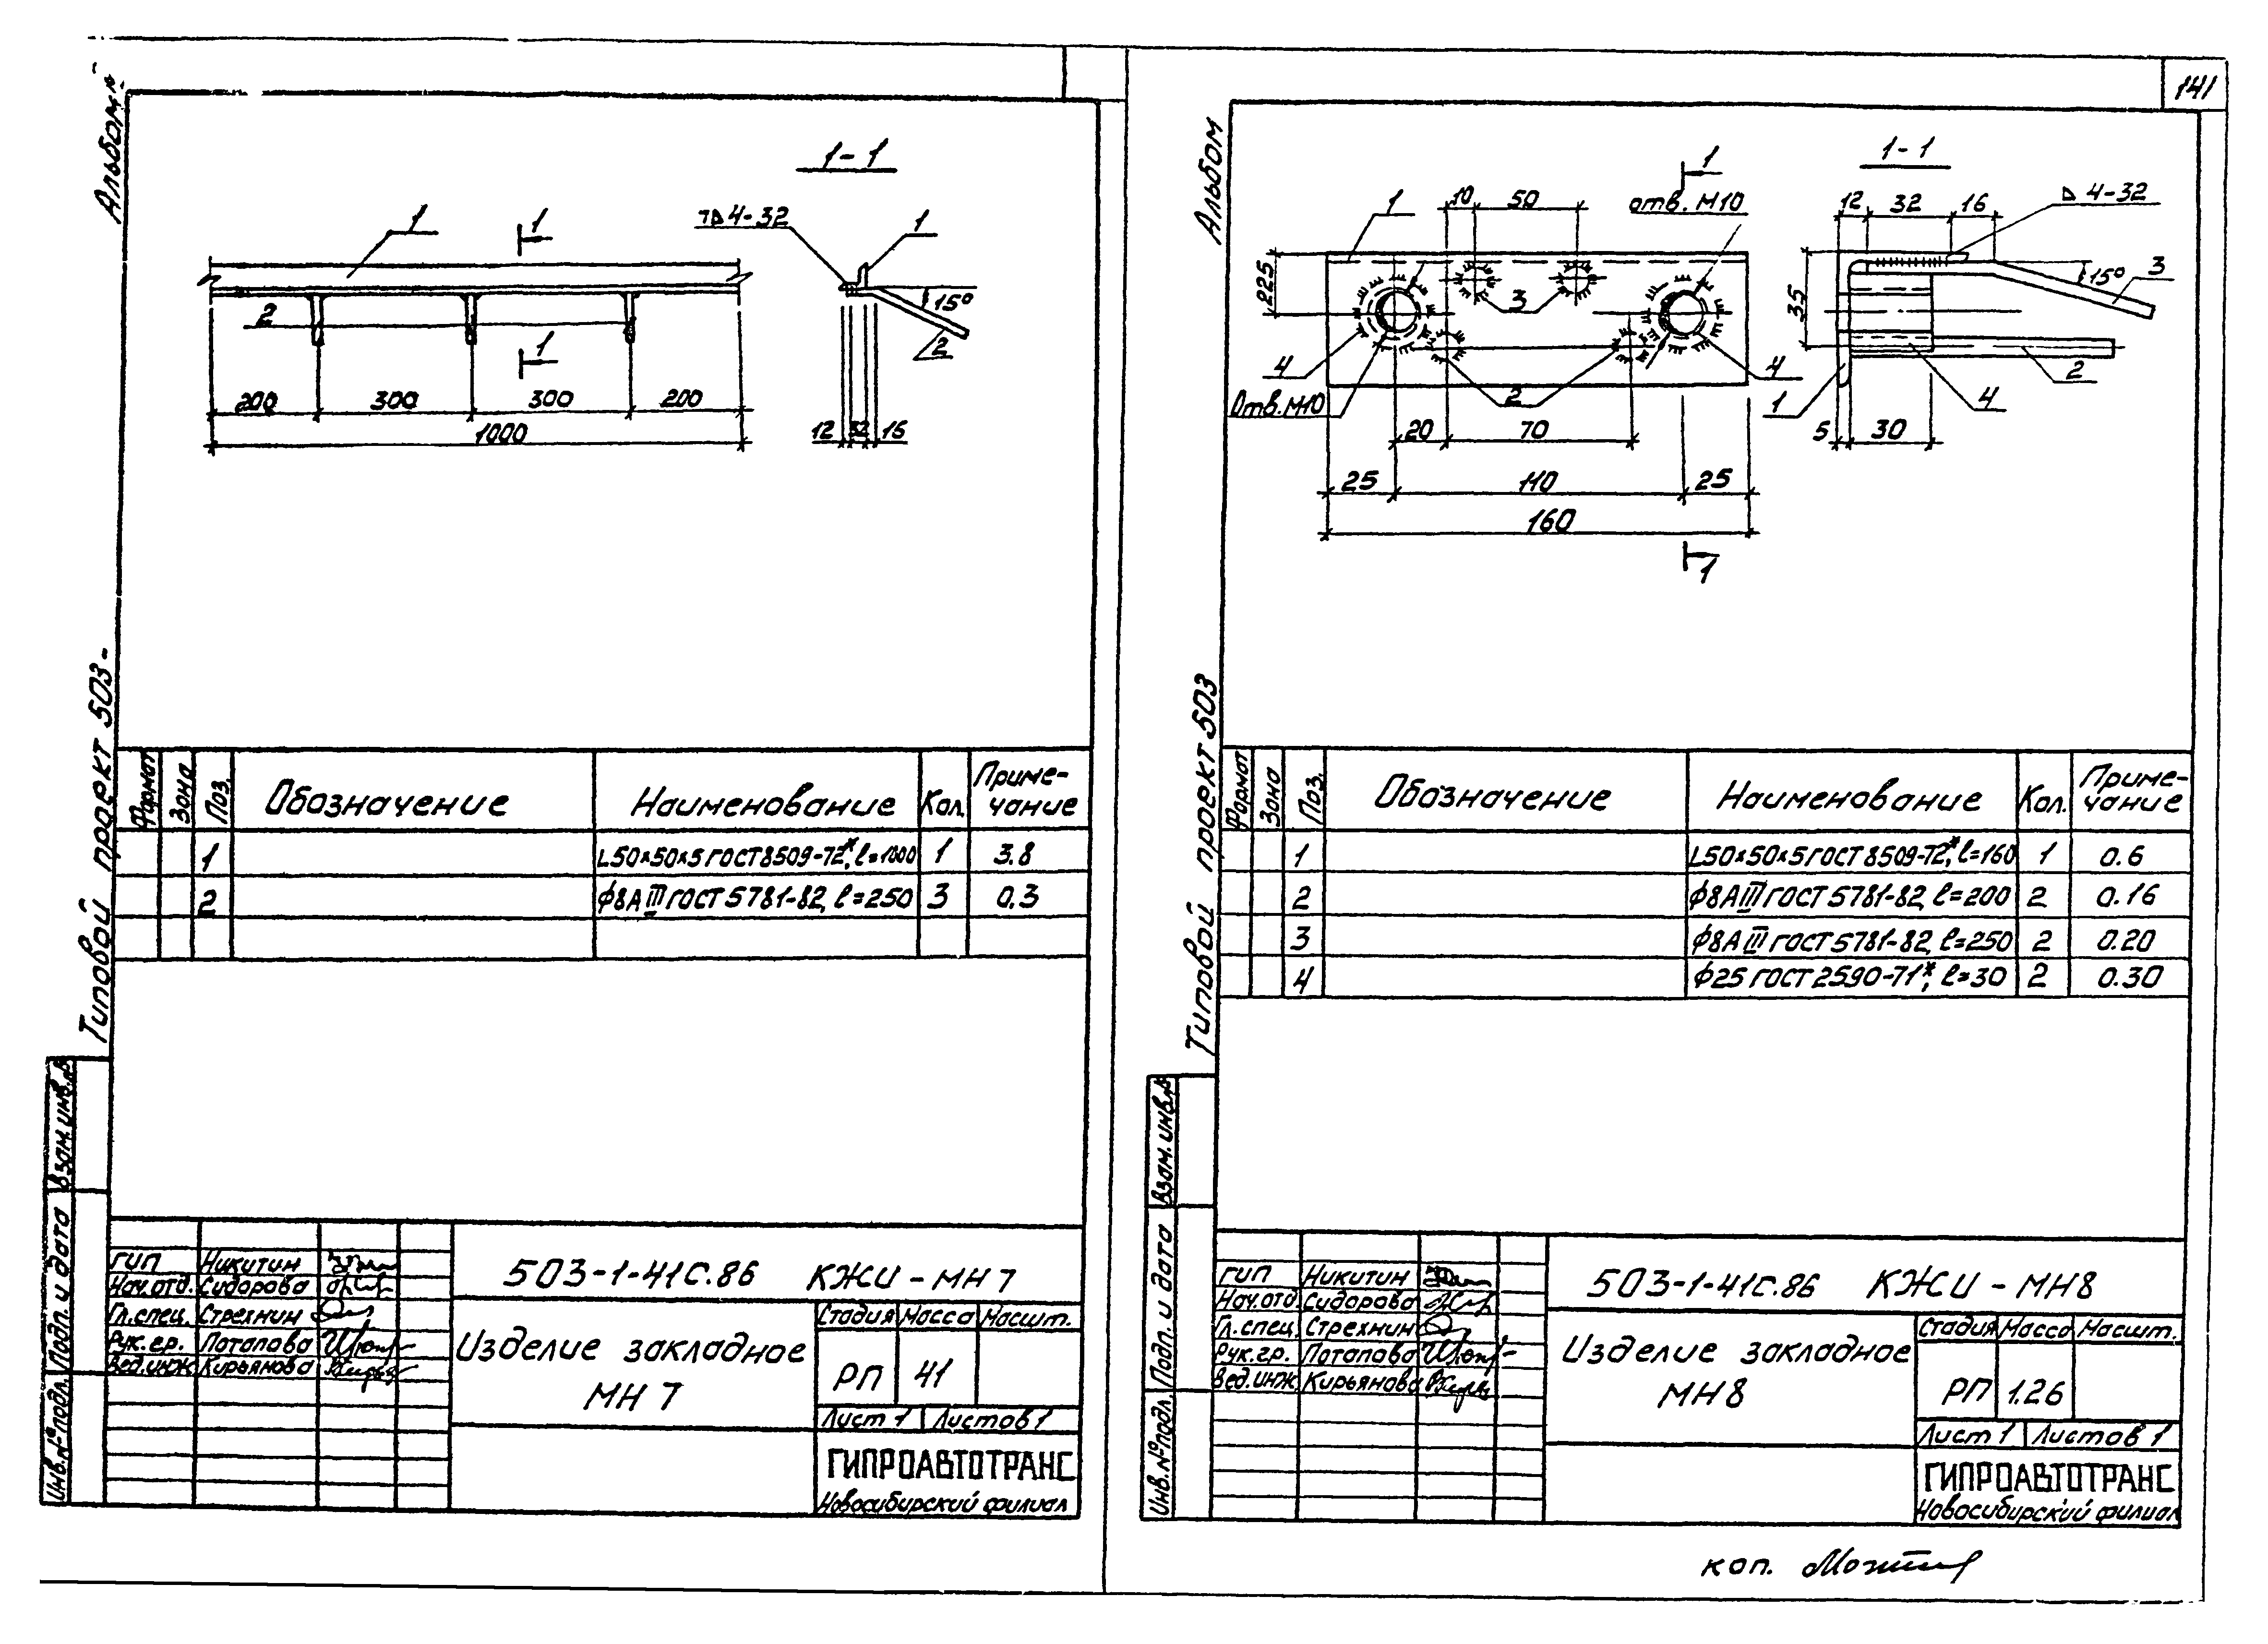 Альбом
1-1
1
1
1
2
⊿4-32
1
15°
2
200
300
300
200
1000
12
32
16
Типовой проект 503-
Формат
Зона
Поз.
Обозначение
Наименование
Кол.
Приме-
чание
1
L50×50×5 ГОСТ 8509-72*, ℓ=1000
1
3.8
2
ф8АIII ГОСТ 5781-82, ℓ=250
3
0.3
Взам.инв.№
Подп. и дата
Инв.№подл.
ГИП Никитин
Нач.отд. Сидорова
Гл.спец. Стрехнин
Рук.гр. Потапова
Вед.инж. Кирьянова
503-1-41с.86 КЖИ-МН7
Изделие закладное
МН 7
Стадия Масса Масшт.
РП 41
Лист 1 Листов 1
ГИПРОАВТОТРАНС
Новосибирский филиал
141
Альбом
1
1
10
50
отв. М10
225
3
4
4
Отв. М10
2
20
70
25
110
25
160
1
1-1
12
32
16
⊿4-32
15°
3
35
2
1
4
5
30
Типовой проект 503
Формат
Зона
Поз.
Обозначение
Наименование
Кол.
Приме-
чание
1
L50×50×5 ГОСТ 8509-72*, ℓ=160
1
0.6
2
ф8АIII ГОСТ 5781-82, ℓ=200
2
0.16
3
ф8АIII ГОСТ 5781-82, ℓ=250
2
0.20
4
ф25 ГОСТ 2590-71*, ℓ=30
2
0.30
Взам.инв.№
Подп. и дата
Инв.№подл.
ГИП Никитин
Нач.отд. Сидорова
Гл.спец. Стрехнин
Рук.гр. Потапова
Вед.инж. Кирьянова
503-1-41с.86 КЖИ-МН8
Изделие закладное
МН8
Стадия Масса Масшт.
РП 1.26
Лист 1 Листов 1
ГИПРОАВТОТРАНС
Новосибирский филиал
коп.